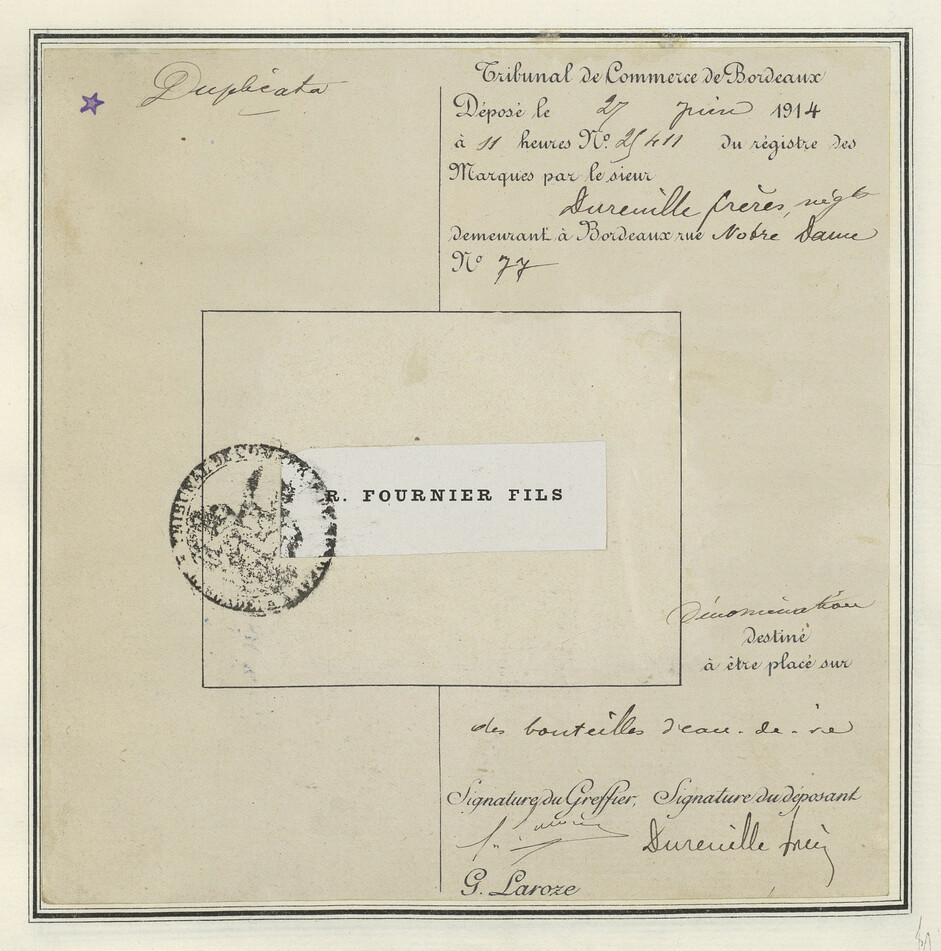 Duplicata
Tribunal de Commerce de Bordeaux
Déposé le 27 Juin 1914
à 11 heures Nº 25411 du régistre des
Marques par le sieur
Dureuille frères, négts
demeurant à Bordeaux rue Notre Dame
Nº 77
TRIBUNAL DE COMMERCE DE
R. FOURNIER FILS
Dénomination
destiné
à être placé sur
des bouteilles d'eau-de-vie
Signature du Greffier, Signature du déposant
Dureuille frères
G. Laroze